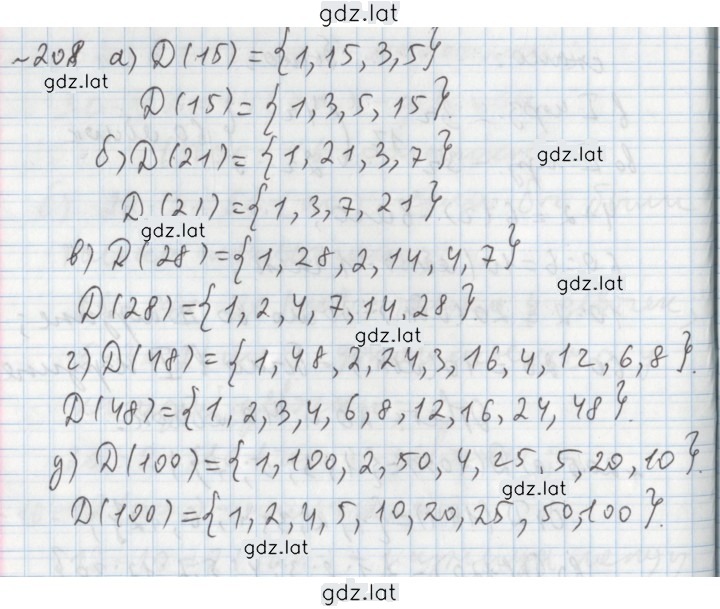 gdz.lat
~208 а) D(15) = {1, 15, 3, 5}
gdz.lat
D(15) = {1, 3, 5, 15}.
б) D(21) = {1, 21, 3, 7}
gdz.lat
D(21) = {1, 3, 7, 21}
gdz.lat
в) D(28) = {1, 28, 2, 14, 4, 7}
gdz.lat
D(28) = {1, 2, 4, 7, 14, 28}
gdz.lat
г) D(48) = {1, 48, 2, 24, 3, 16, 4, 12, 6, 8}.
D(48) = {1, 2, 3, 4, 6, 8, 12, 16, 24, 48}.
д) D(100) = {1, 100, 2, 50, 4, 25, 5, 20, 10}.
gdz.lat
D(100) = {1, 2, 4, 5, 10, 20, 25, 50, 100}.
gdz.lat
gdz.lat